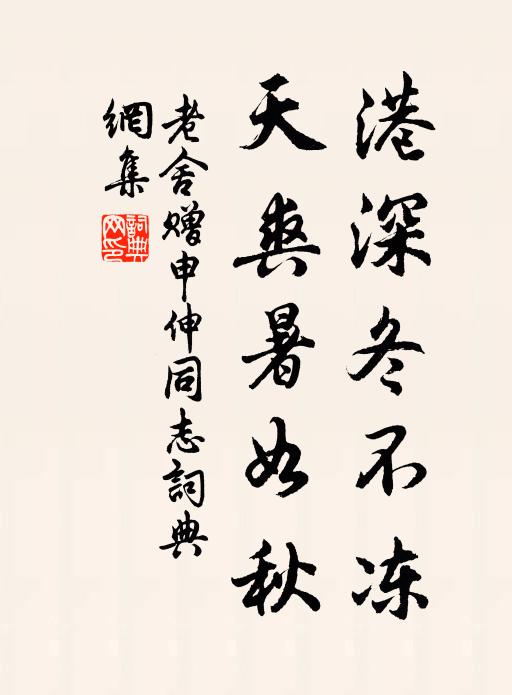 港深冬不冻
天爽暑如秋
老舍赠申仲同志詞典
網集
詞典
网印